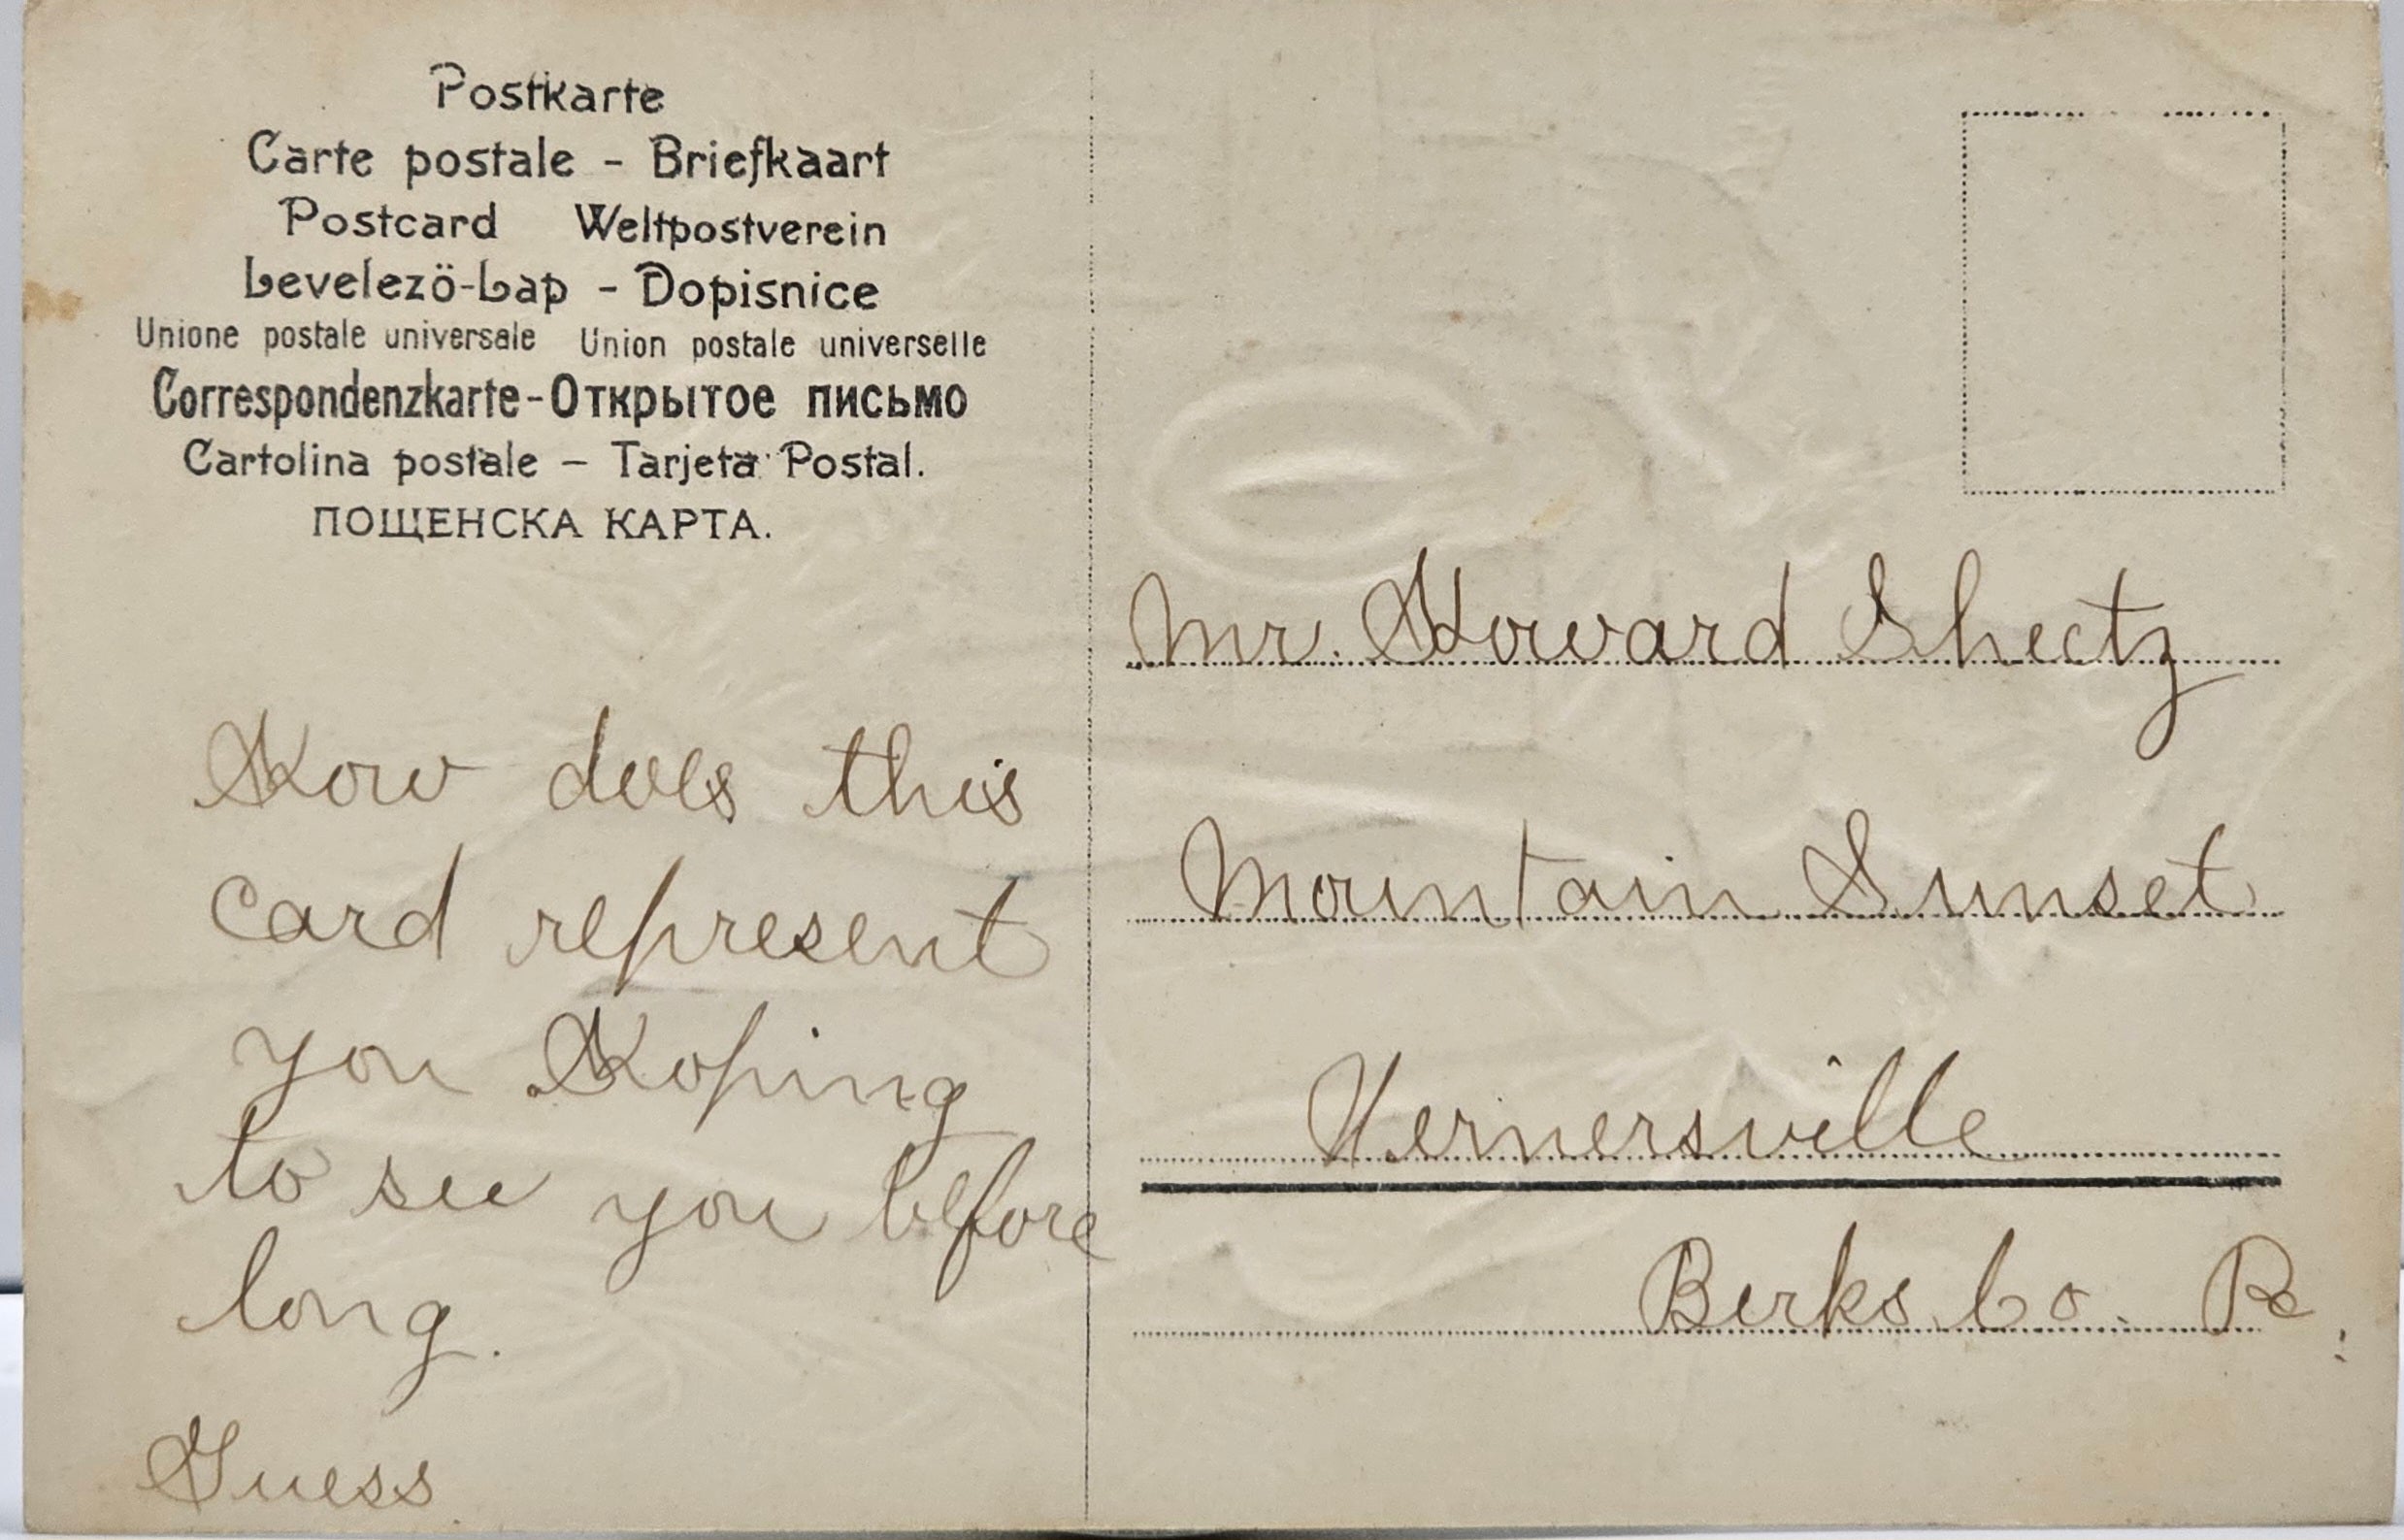 Postkarte
Carte postale - Briefkaart
Postcard Weltpostverein
Levelezö-Lap - Dopisnice
Unione postale universale Union postale universelle
Correspondenzkarte-Открытое письмо
Cartolina postale – Tarjeta Postal.
ПОЩЕНСКА КАРТА.
How does this
card represent
you Hoping
to see you before
long.
Guess
Mr. Howard Shectz
Mountain Sunset
Wernersville
Berks Co. Pa